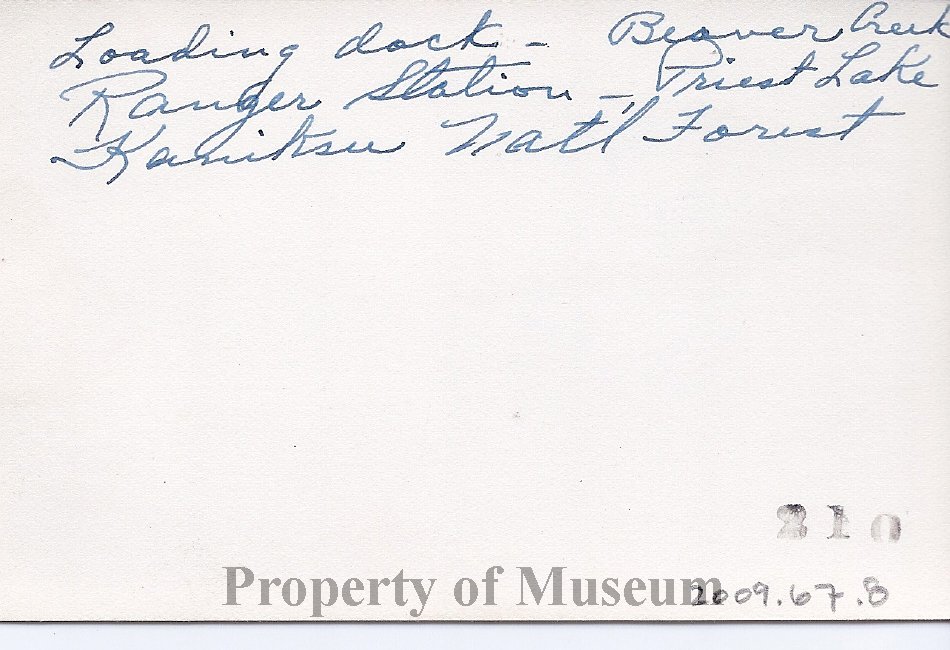 Loading dock - Beaver Creek
Ranger Station - Priest Lake
Kaniksu Nat'l Forest
210
Property of Museum
2009.67.8